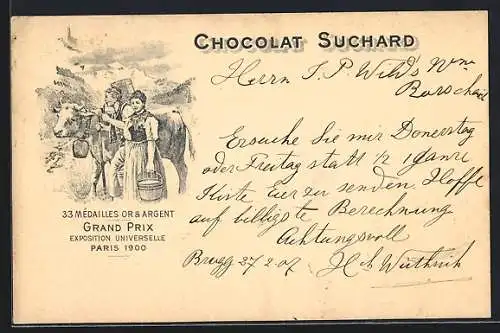 CHOCOLAT SUCHARD
Herrn J. P. Wild's Wwe
Rorschach
Ersuche Sie mir Donerstag
oder Freitag statt 1/2 1 ganze
Kiste Eier zu senden. Hoffe
auf billigste Berechnung
Achtungsvoll
Brugg 27.2.07 Hch Wüthrich
33 MÉDAILLES OR & ARGENT
GRAND PRIX
EXPOSITION UNIVERSELLE
PARIS 1900